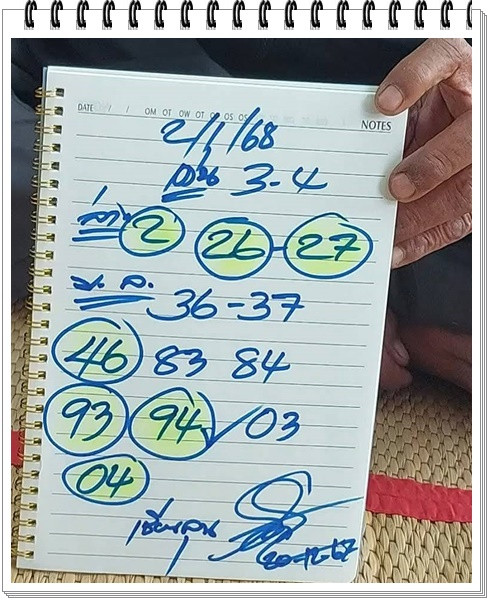 DATE / / OM OT OW OT OF OS OS
NOTES
2/1/68
เด่น 3-4
ล่าง 2 26-27
ม.ล. 36-37
46 83 84
93 94 / 03
04
20-12-67